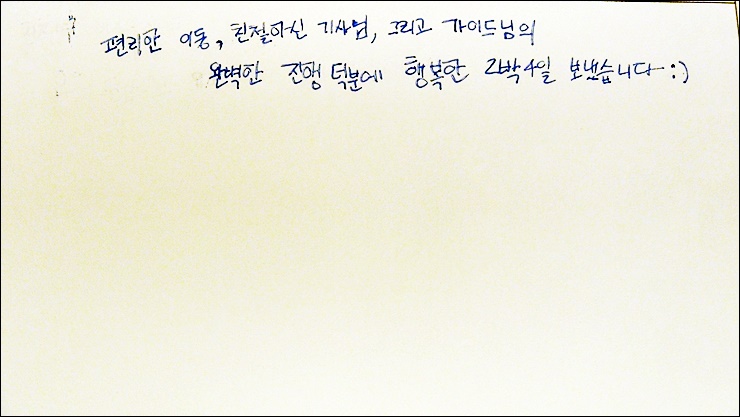 편리한 이동, 친절하신 기사님, 그리고 가이드님의
완벽한 진행 덕분에 행복한 2박4일 보냈습니다 :)